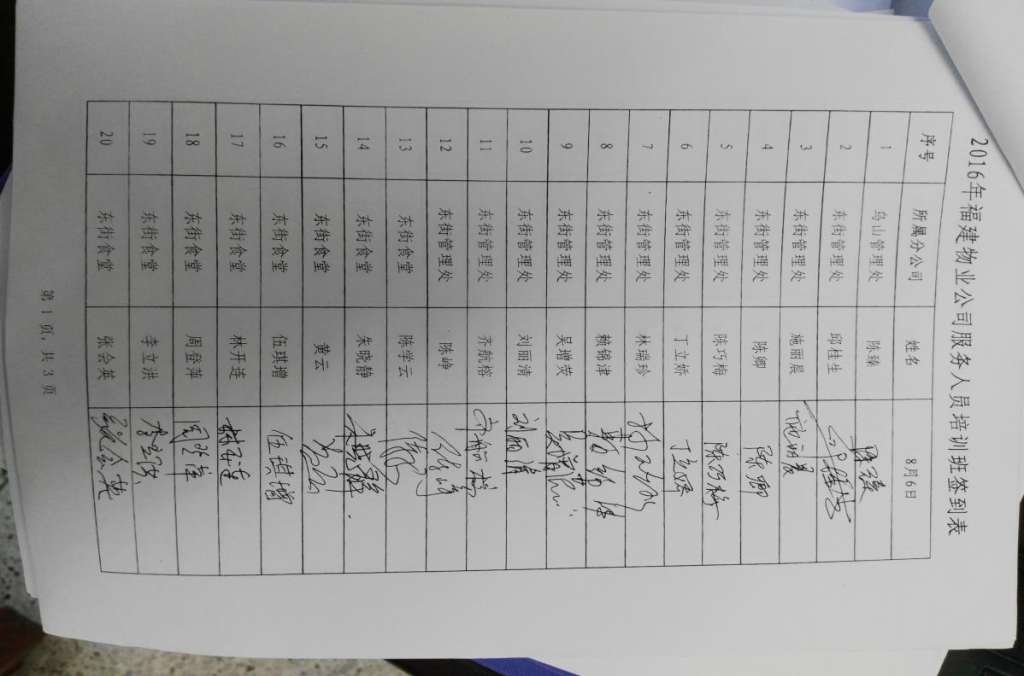 2016年福建物业公司服务人员培训班签到表
序号 所属分公司 姓名 8月6日
1 乌山管理处 陈臻 陈臻
2 东街管理处 邱桂生 邱桂生
3 东街管理处 施丽晨 施丽晨
4 东街管理处 陈卿 陈卿
5 东街管理处 陈巧梅 陈巧梅
6 东街管理处 丁立娇 丁立娇
7 东街管理处 林瑞珍
8 东街管理处 赖锦津
9 东街管理处 吴增荧 吴增荧
10 东街管理处 刘丽清 刘丽清
11 东街管理处 齐航榕 齐航榕
12 东街管理处 陈峥 陈峥
13 东街食堂 陈学云
14 东街食堂 朱晓静 朱晓静
15 东街食堂 黄云
16 东街食堂 伍琪增 伍琪增
17 东街食堂 林开连 林开连
18 东街食堂 周登萍 周登萍
19 东街食堂 李立洪 李立洪
20 东街食堂 张会英 张会英
第 1 页, 共 3 页